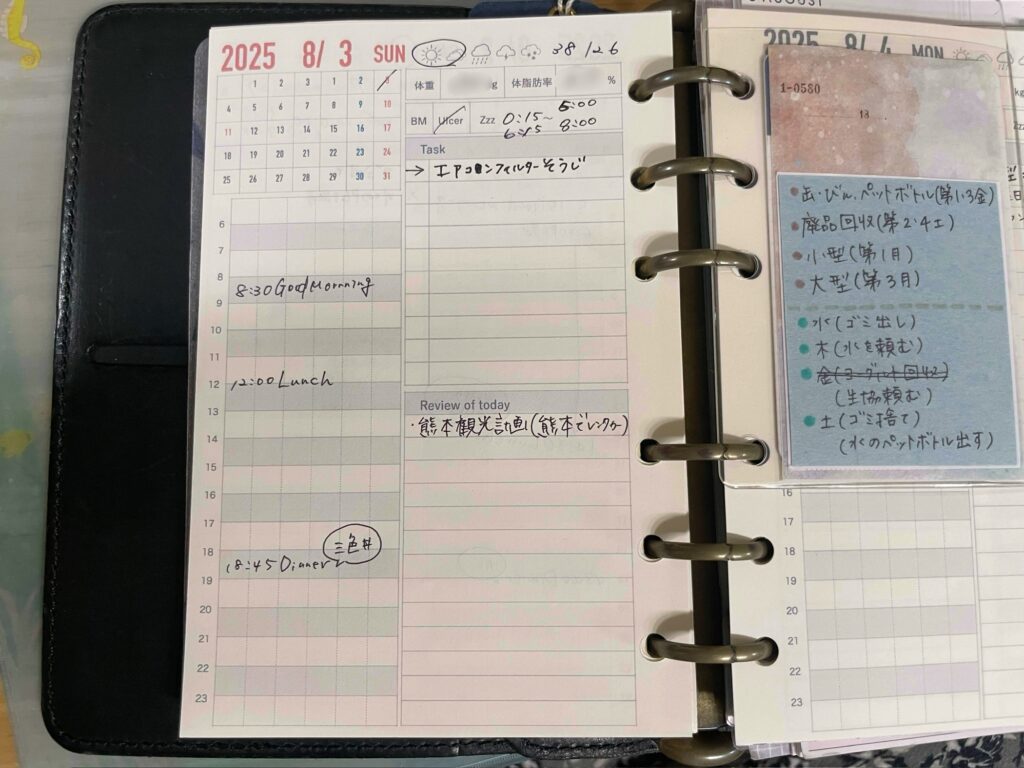 2025 8/ 3 SUN
38 / 26
1 2 3 1 2 3
4 5 6 7 8 9 10
11 12 13 14 15 16 17
18 19 20 21 22 23 24
25 26 27 28 29 30 31
体重 g 体脂肪率 %
BM Ulcer Zzz 0:15~ 5:00
6:15 8:00
Task
→ エアコンフィルターそうじ
6
7
8
8:30 Good Mornning
9
10
11
12
12:00 Lunch
13
14
15
16
17
三色丼
18
18:45 Dinner
19
20
21
22
23
Review of today
・熊本観光計画(熊本でレンタカー)
AUGUST
2025 8/ 4 MON
1-0580
13
缶・びん、ペットボトル(第1・3金)
廃品回収(第2・4土)
小型(第1月)
大型(第3月)
水(ゴミ出し)
木(水を頼む)
金(ヨーグルト回収)
(生協頼む)
土(ゴミ捨て)
(水のペットボトル出す)
16
17
18
19
20
21
22
23